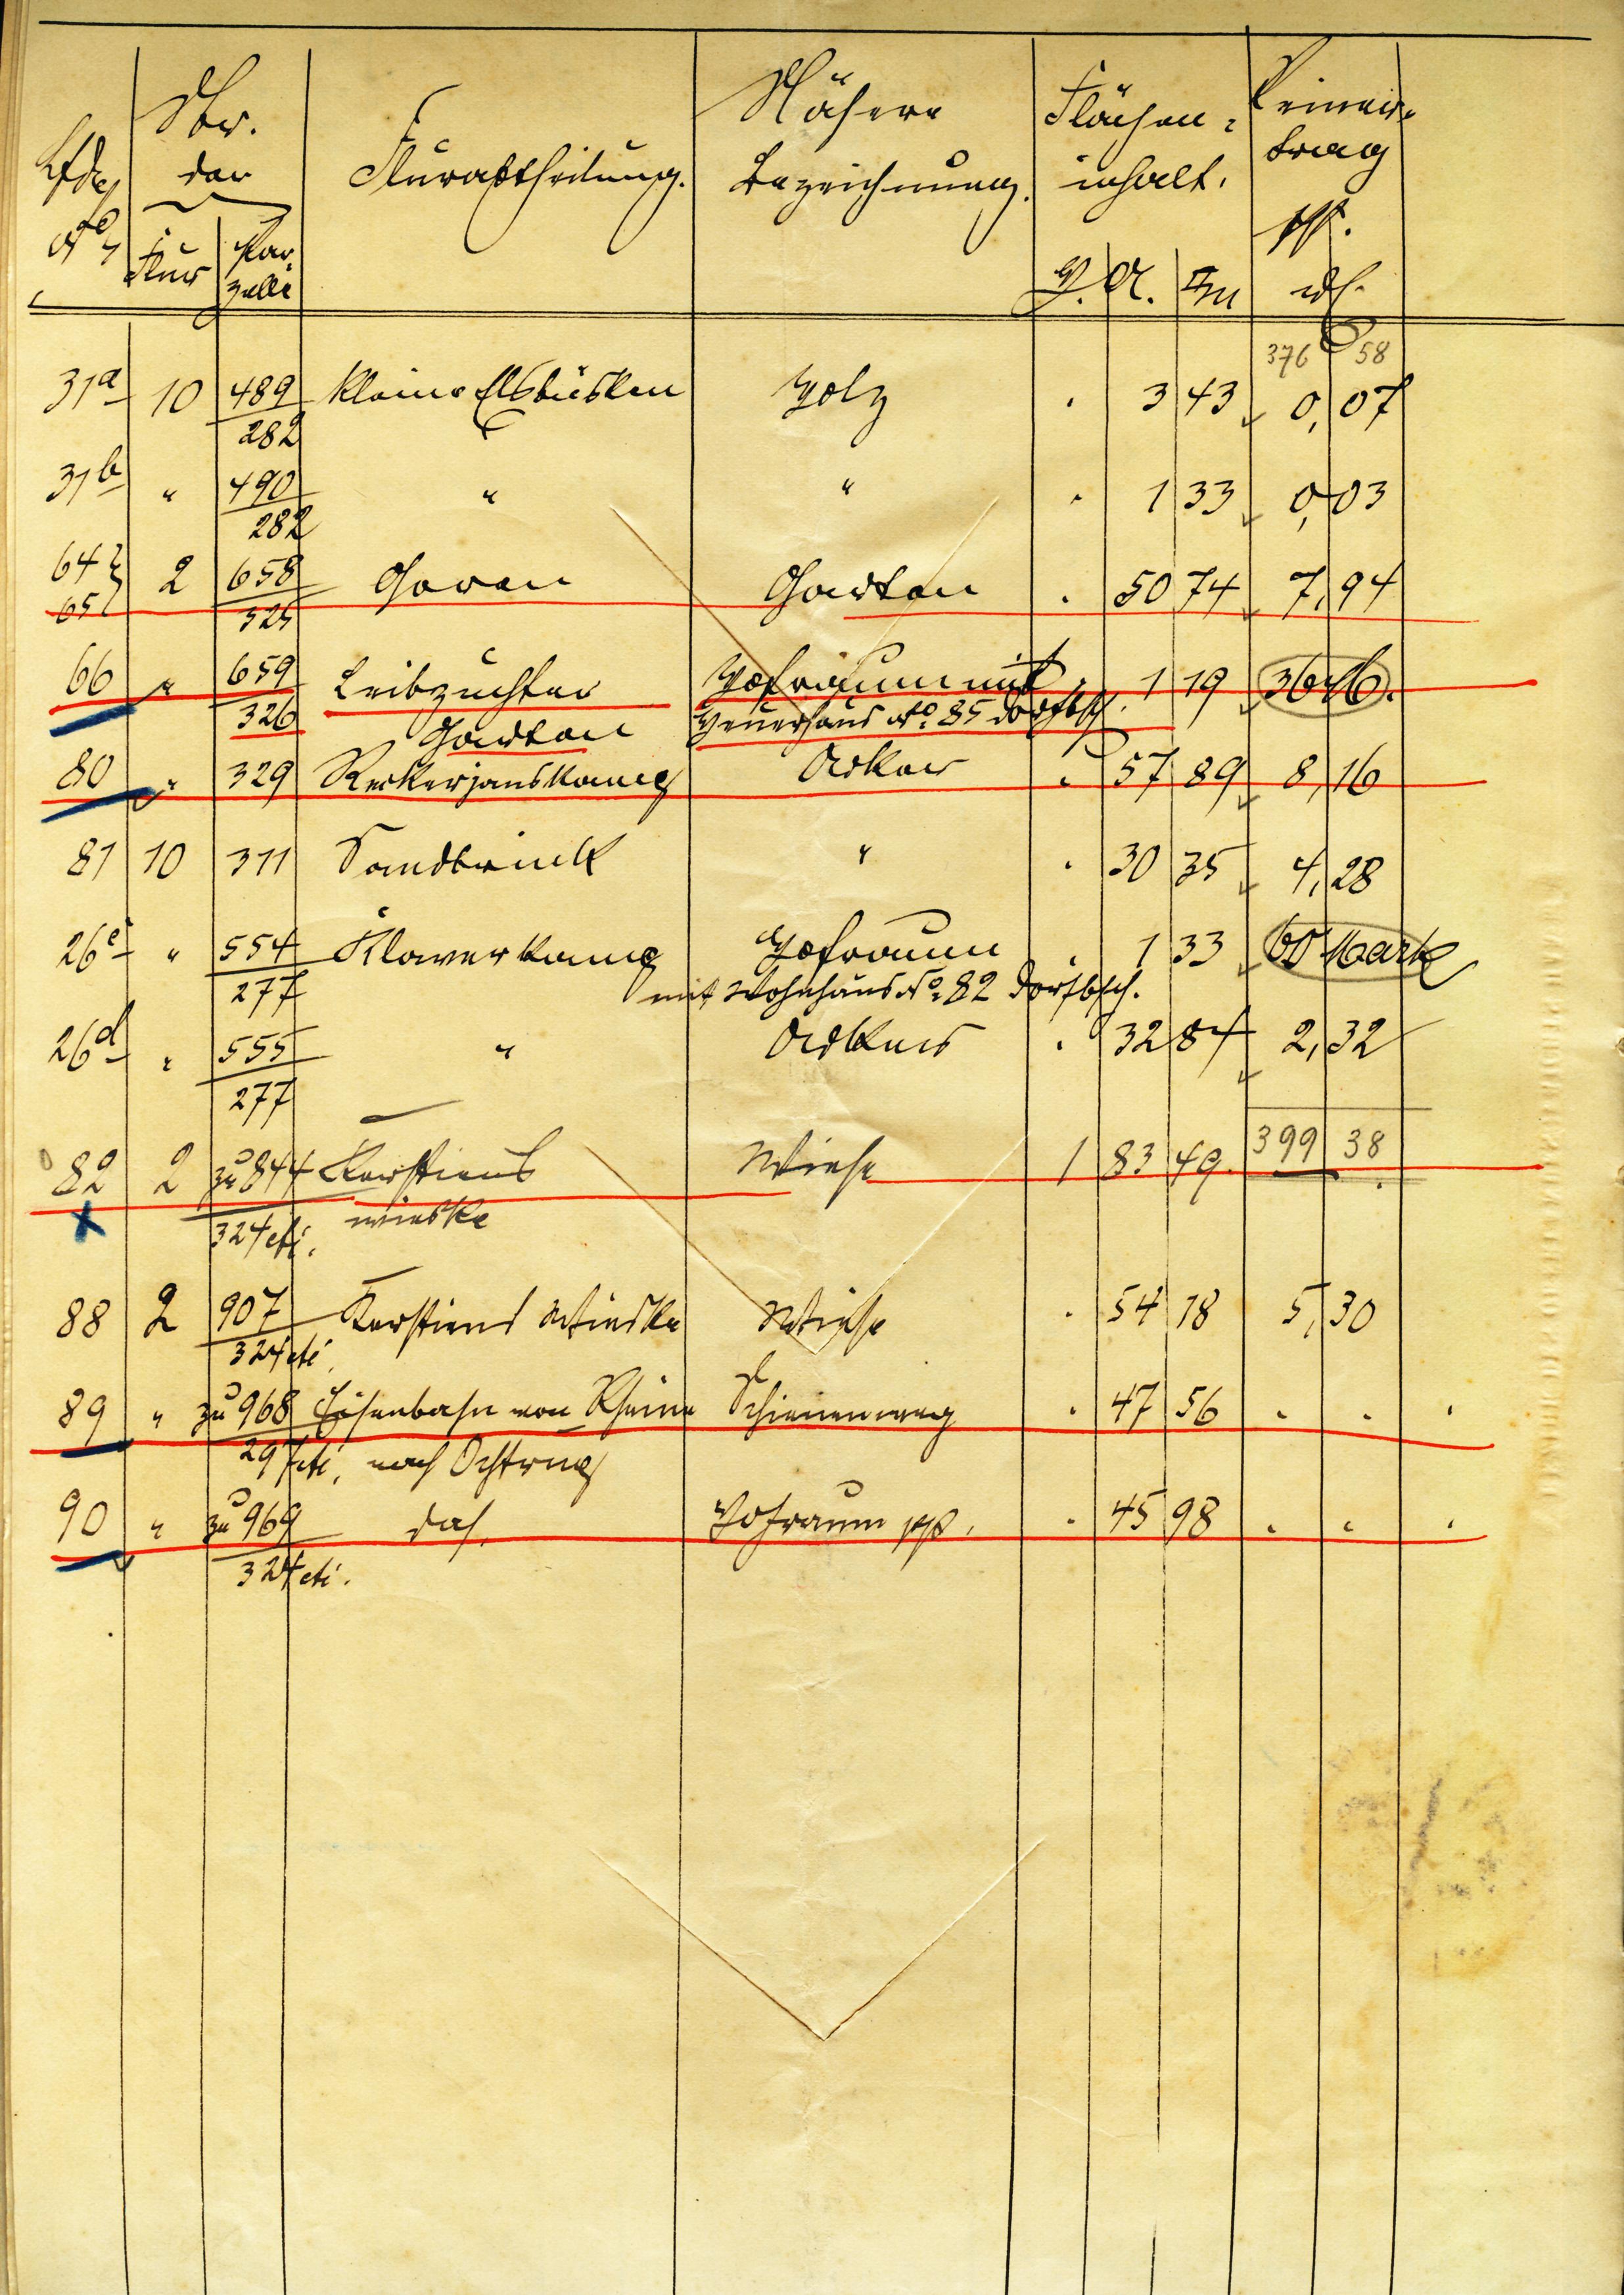 Lfde No
Nr. der
Flur
Par-
zelle
Flurabtheilung.
Nähere
Bezeichnung.
Flächen-
inhalt.
H. A. qm
Reiner-
trag
M.
376 58
31a 10 489/282 Kleine Elsbüsken Holz . 3 43 0,07
31b " 490/282 " " . 1 33 0,03
64 } 65 } 2 658/325 Goren Garten . 50 74 7,94
66 " 659/326 Leibzuchter Hofraum mit . 1 19 36 M.
Garten Heuerhaus No. 85 Dorfbsch.
80 " 329 Reckerjanskamp Acker " 57 89 8,16
81 10 311 Sandbrink " . 30 35 4,28
26c " 554/277 Klaverkamp Hofraum . 1 33 60 Mark
mit Wohnhaus No. 82 Dorfbsch.
26d " 555/277 " Acker . 32 84 2,32
82 2 zu 844/324 etc. Kerstiens Wiese 1 83 49. 399 38
wieske
88 2 907/324 etc. Kerstiens Wieske Wiese . 54 18 5,30
89 " zu 968/297 etc. Eisenbahn von Rheine Schienenweg . 47 56 . . .
nach Ochtrup
90 " zu 969/324 etc. das. Hofraum pp. . 45 98 . . .